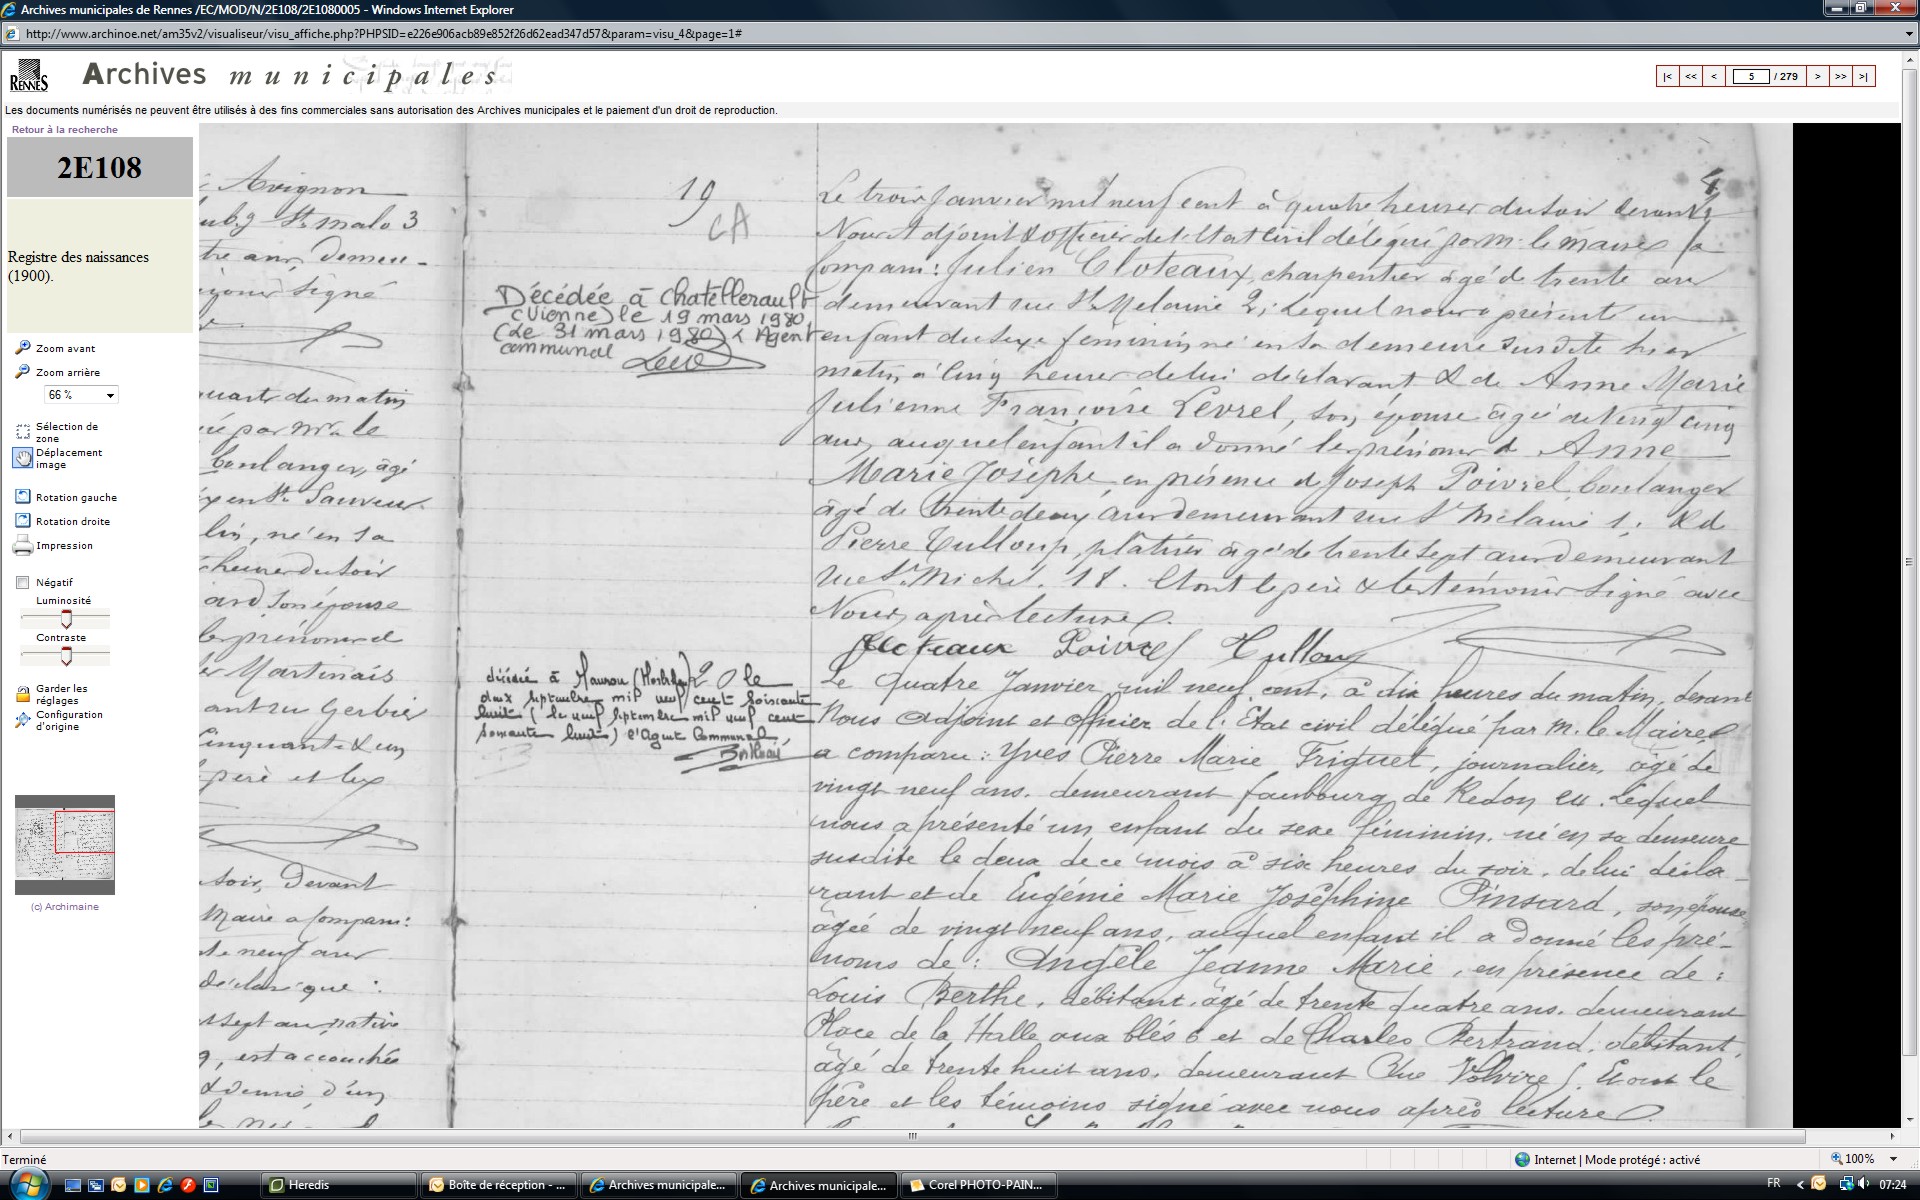 Archives municipales de Rennes /EC/MOD/N/2E108/2E1080005 - Windows Internet Explorer
http://www.archinoe.net/am35v2/visualiseur/visu_affiche.php?PHPSID=e226e906acb89e852f26d62ead347d57&param=visu_4&page=1#
RENNES
Archives municipales
|< << < 5 / 279 > >> >|
Les documents numérisés ne peuvent être utilisés à des fins commerciales sans autorisation des Archives municipales et le paiement d'un droit de reproduction.
Retour à la recherche
2E108
Registre des naissances
(1900).
Zoom avant
Zoom arrière
66 %
Sélection de
zone
Déplacement
image
Rotation gauche
Rotation droite
Impression
Négatif
Luminosité
Contraste
Garder les
réglages
Configuration
d'origine
(c) Archimaine
Avignon
St malo 3
tre ans, Demeu-
signé
quarts du matin
par le
boulanger, âgé
en St Sauveur
lin, né en sa
heures du soir
son épouse
les prénoms de
Martinais
Gerbier
Cinquante & un
père et les
soir, Devant
Maire a Compam:
neuf ans
déclaré que :
sept ans, native
est accouchée
d'un
19
CA
Décédée à Chatellerault
(Vienne) le 19 mars 1980
(Le 31 mars 1980) L'Agent
communal
20
décédée à Mauron (Morbihan) le
deux septembre mil neuf cent soixante
huit (le neuf septembre mil neuf cent
soixante huit) l'Agent Communal,
4
Le trois Janvier mil neuf cent à quatre heures du soir devant
Nous Adjoint & officier de l'Etat Civil délégué par M. le Maire a
Compam: Julien Cloteaux, charpentier âgé de trente ans
demeurant rue St Melaine 2; Lequel nous a présenté un
enfant du sexe féminin, né en sa demeure susdite hier
matin à Cinq heures de lui déclarant & de Anne Marie
Julienne Françoise Levrel, son épouse âgée de Vingt cinq
ans, auquel enfant il a donné les prénoms de Anne
Marie Josèphe, en présence de Joseph Poivrel, boulanger
âgé de trente deux ans demeurant rue St Melaine 1, & de
Pierre Tulloup, plâtrier âgé de trente sept ans demeurant
rue St Michel. 18. Et ont le père & les témoins signé avec
Nous, après lecture.
Cloteaux Poivrel Tulloup
Le quatre Janvier mil neuf cent, à dix heures du matin, devant
Nous adjoint et officier de l'Etat civil délégué par M. le Maire
a comparu : Yves Pierre Marie Friguet, journalier, âgé de
vingt neuf ans, demeurant faubourg de Redon, Lequel
nous a présenté un enfant du sexe féminin, né en sa demeure
susdite le deux de ce mois à six heures du soir, de lui décla-
rant et de Eugénie Marie Joséphine Pinsard, son épouse
âgée de vingt neuf ans, auquel enfant il a donné les pré-
noms de : Angèle Jeanne Marie, en présence de :
Louis Berthe, débitant, âgé de trente quatre ans, demeurant
Place de la Halle aux blés 6 et de Charles Bertrand, débitant,
âgé de trente huit ans, demeurant Rue Volvire 5. Et ont le
père et les témoins signé avec nous après lecture.
Terminé
Internet | Mode protégé : activé
100%
Heredis
Boîte de réception - ...
Archives municipale...
Archives municipale...
Corel PHOTO-PAIN...
FR
07:24